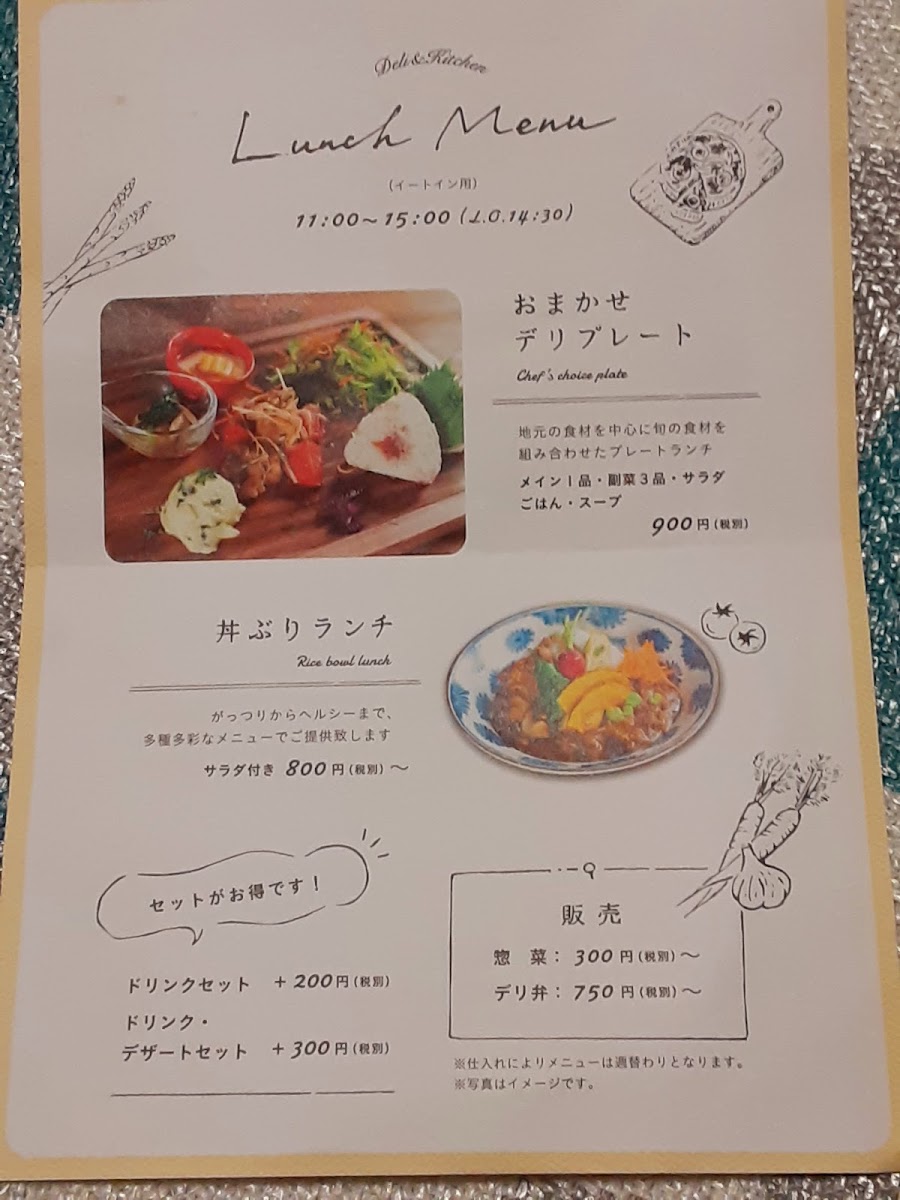 Deli&Kitchen
Lunch Menu
(イートイン用)
11:00〜15:00 (L.O.14:30)
おまかせ
デリプレート
Chef's choice plate
地元の食材を中心に旬の食材を
組み合わせたプレートランチ
メイン1品・副菜3品・サラダ
ごはん・スープ
900円(税別)
丼ぶりランチ
Rice bowl lunch
がっつりからヘルシーまで、
多種多彩なメニューでご提供致します
サラダ付き 800円(税別)〜
セットがお得です!
ドリンクセット +200円(税別)
ドリンク・
デザートセット +300円(税別)
販売
惣 菜: 300円(税別)〜
デリ弁: 750円(税別)〜
※仕入れによりメニューは週替わりとなります。
※写真はイメージです。